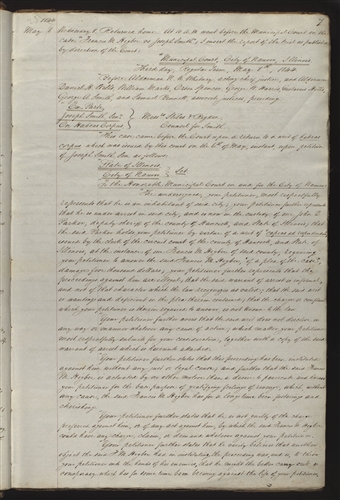 7
May 8
before the Municipal Court on the
case, "Francis M. Higbee vs. Joseph Smith", I insert the report of the trial as published
by direction of the Court:
Municipal Court, City of Nauvoo, Illinois,
Third day, Regular Term, May 8th, 1844
"Before Alderman N. K. Whitney, acting chief justice, and Aldermen
Daniel H. Wells, William Marks, Orson Spencer, George W. Harris, Gustavus Hills,
George A. Smith, and Samuel Bennett associate justices, presiding
Ex Parte
Joseph Smith, Sen.
On Habeas Corpus
Messrs. Stiles & Rigdon,
Counsel for Smith.
"This case came before the Court upon a return to a writ of habeas
corpus which was issued by this court on the 6th of May, instant, upon petition
of Joseph Smith, Sen. as follows:
"State of Illinois
City of Nauvoo
Sct
To the Honorable Municipal Court in and for the City of Nauvoo:
The undersigned, your petitioner, most respectfully
represents that he is an inhabitant of said city; your petitioner further represents
that he is under arrest in said city, and is now in the custody of one John D.
Parker, deputy sheriff of the county of Hancock and State of Illinois; that
the said Parker holds your petitioner by virtue of a writ of "capias ad respondendum"
issued by the clerk of the circuit court of the county of Hancock, and State of
Illinois, at the instance of one Francis M. Higbee of said county, requiring
your petitioner to answer the said Francis M. Higbee, "of a plea of the case";
damage, five thousand dollars; your petitioner further represents that the
proceedings against him are illegal; that the said warrant of arrest is informal,
and not of that character which the law recognizes as valid; that the said writ
is wanting and deficient in the plea therein contained; that the charge or complaint
which your petitioner is therein required to answer, is not known to the law.
Your petitioner further avers that the said writ does not disclose in
any way or manner whatever any cause of action; which matters your petitioner
most respectfully submits for your consideration, together with a copy of the said
warrant of arrest which is hereunto attached.
Your petitioner further states that this proceeding has been instituted
against him without any just or legal cause; and further that the said Francis
M. Higbee is actuated by no other motive than a desire to persecute and harass
your petitioner for the base purpose of gratifying feelings of revenge, which, without
any cause, the said Francis M. Higbee has for a long time been fostering and
cherishing.
Your petitioner further states that he is not guilty of the charge
preferred against him, or of any act against him, by which the said Francis M. Higbee
could have any charge, claim, or demand whatever against your petitioner.
Your petitioner further states that he verily believes that another
object the said F. M. Higbee has in instituting the proceeding was and is, to throw
your petitioner into the hands of his enemies, that he might the better carry out a
conspiracy which has for some time been brewing against the life of your petitioner,